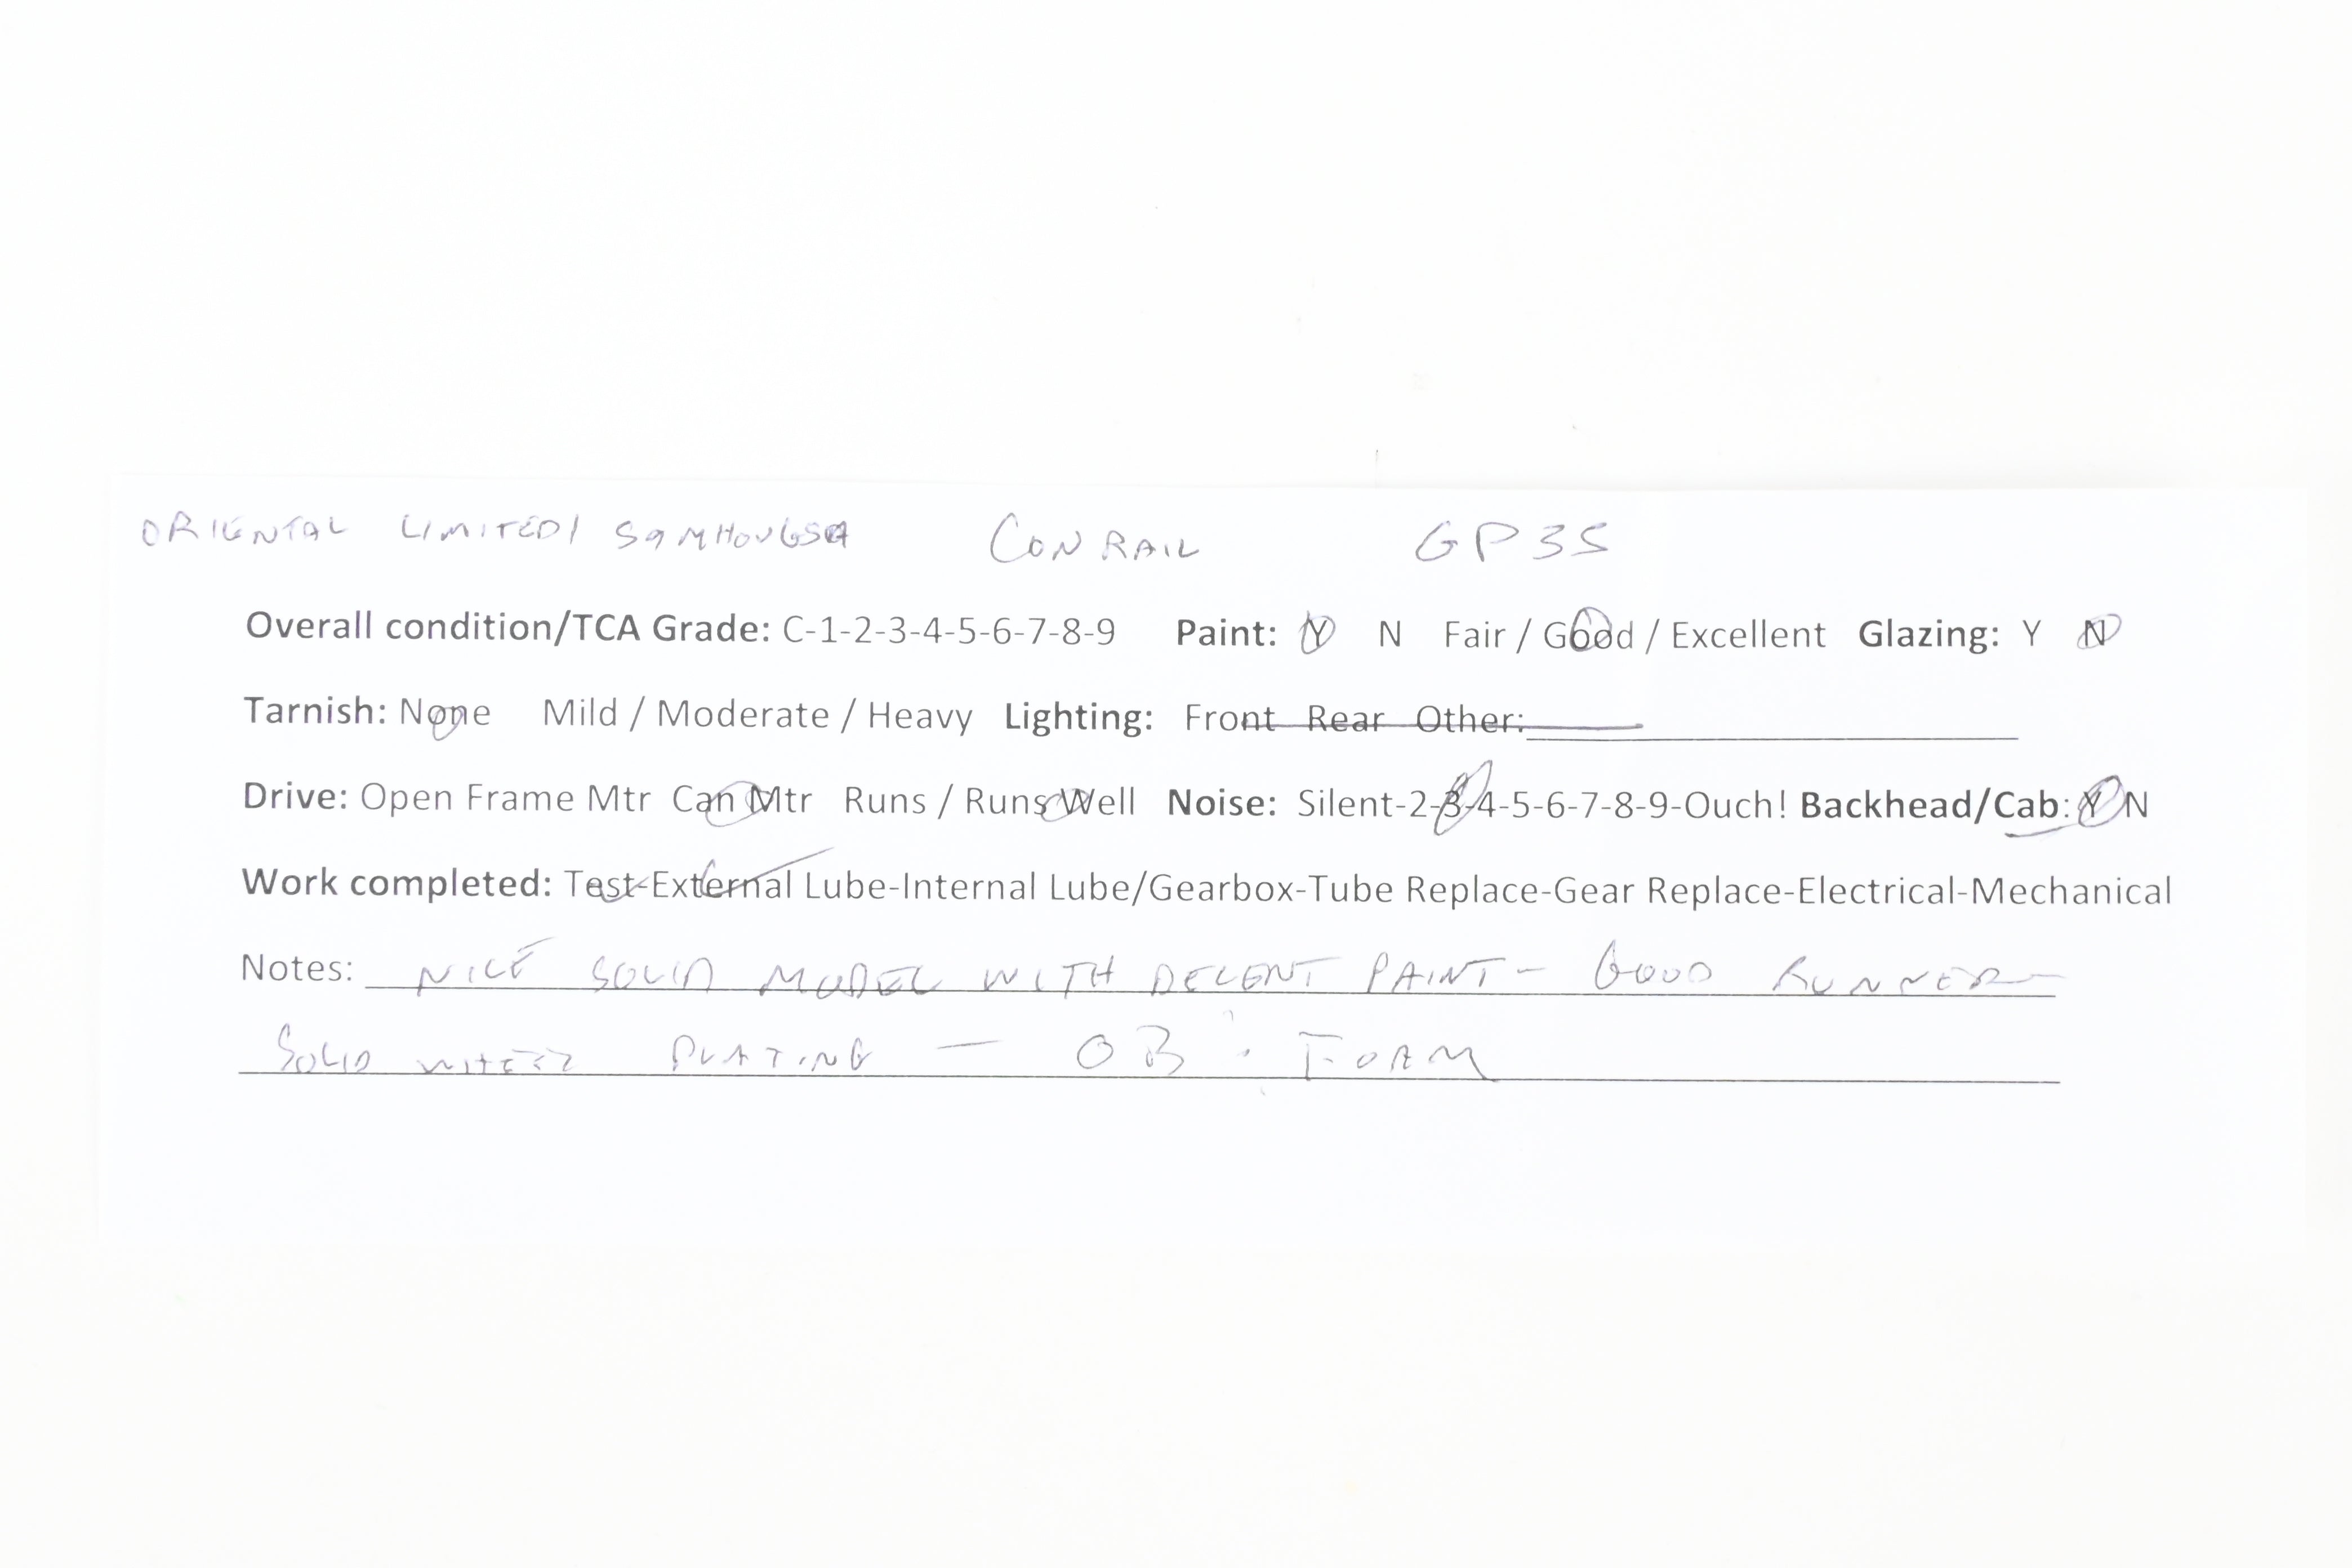 ORIENTAL LIMITED/ SAMHONGSA CONRAIL GP35
Overall condition/TCA Grade: C-1-2-3-4-5-6-7-8-9 Paint: Y N Fair / Good / Excellent Glazing: Y N
Tarnish: None Mild / Moderate / Heavy Lighting: Front Rear Other:
Drive: Open Frame Mtr Can Mtr Runs / Runs Well Noise: Silent-2-3-4-5-6-7-8-9-Ouch! Backhead/Cab: Y N
Work completed: Test-External Lube-Internal Lube/Gearbox-Tube Replace-Gear Replace-Electrical-Mechanical
Notes: NICE SOLID MODEL WITH DECENT PAINT - GOOD RUNNER
SOLID WHEEL PLATING - OB. FOAM